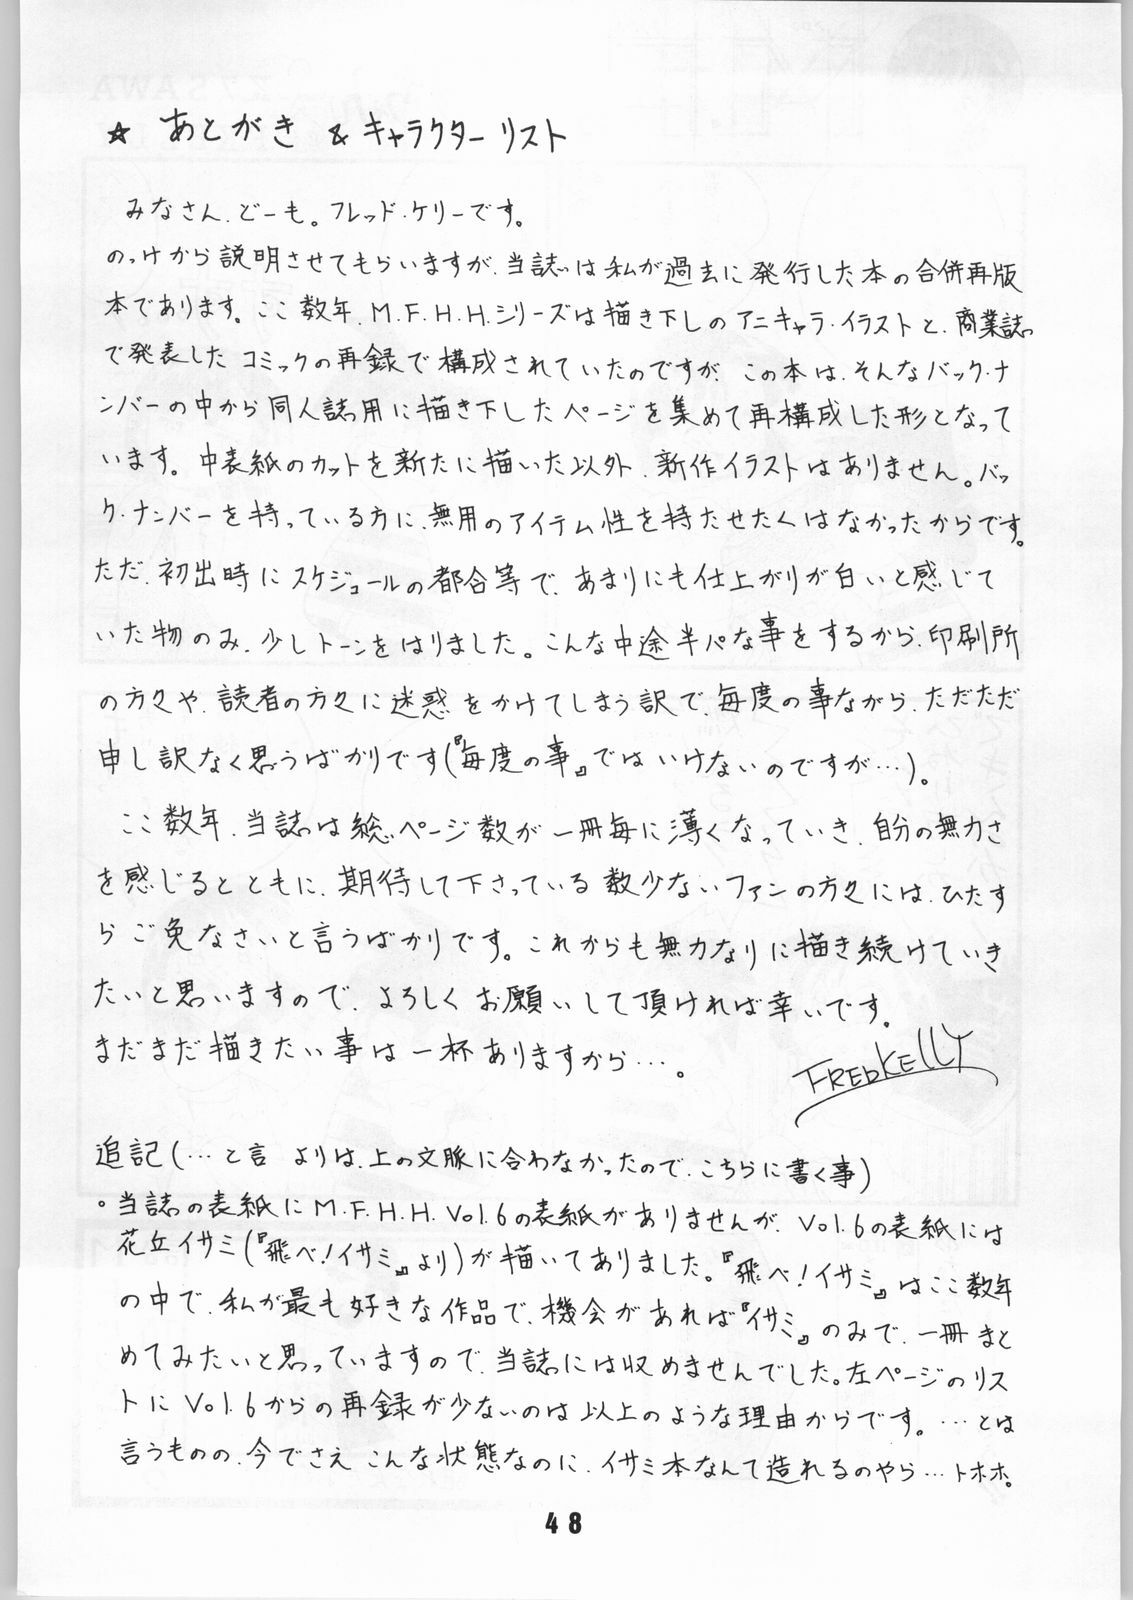 ☆ あとがき & キャラクターリスト
みなさん、どーも。フレッド・ケリーです。
のっけから説明させてもらいますが、当誌は私が過去に発行した本の合併再版
本であります。ここ数年、M.F.H.H.シリーズは描き下しのアニキャラ・イラストと、商業誌
で発表したコミックの再録で構成されていたのですが、この本は、そんなバック・ナ
ンバーの中から同人誌用に描き下したページを集めて再構成した形となって
います。中表紙のカットを新たに描いた以外、新作イラストはありません。バッ
ク・ナンバーを持っている方に、無用のアイテム性を持たせたくはなかったからです。
ただ、初出時にスケジュールの都合等で、あまりにも仕上がりが白いと感じて
いた物のみ、少しトーンをはりました。こんな中途半パな事をするから、印刷所
の方々や、読者の方々に迷惑をかけてしまう訳で、毎度の事ながら、ただただ
申し訳なく思うばかりです(『毎度の事』ではいけないのですが…)。
ここ数年、当誌は総ページ数が一冊毎に薄くなっていき、自分の無力さ
を感じるとともに、期待して下さっている数少ないファンの方々には、ひたす
らご免なさいと言うばかりです。これからも無力なりに描き続けていき
たいと思いますので、よろしくお願いして頂ければ幸いです。
まだまだ描きたい事は一杯ありますから…。
FREDKELLY
追記(…と言 よりは、上の文脈に合わなかったので、こちらに書く事)
。当誌の表紙にM.F.H.H.Vol.6の表紙がありませんが、Vol.6の表紙には
花丘イサミ(『飛べ!イサミ』より)が描いてありました。『飛べ!イサミ』はここ数年
の中で、私が最も好きな作品で、機会があれば『イサミ』のみで、一冊まと
めてみたいと思っていますので、当誌には収めませんでした。左ページのリス
トにVol.6からの再録が少ないのは以上のような理由からです。…とは
言うものの、今でさえこんな状態なのに、イサミ本なんて造れるのやら…トホホ。
48